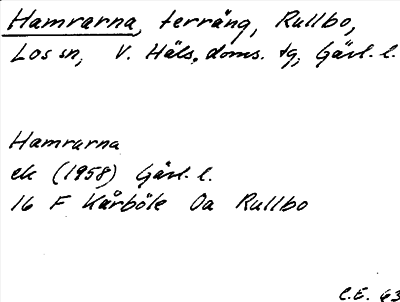 Hamrarna, terräng, Rullbo,
Los sn, V. Häls. doms. tg, Gävl. l.
Hamrarna
ek (1958) Gävl. l.
16 F Kårböle 0a Rullbo
C.E. 63